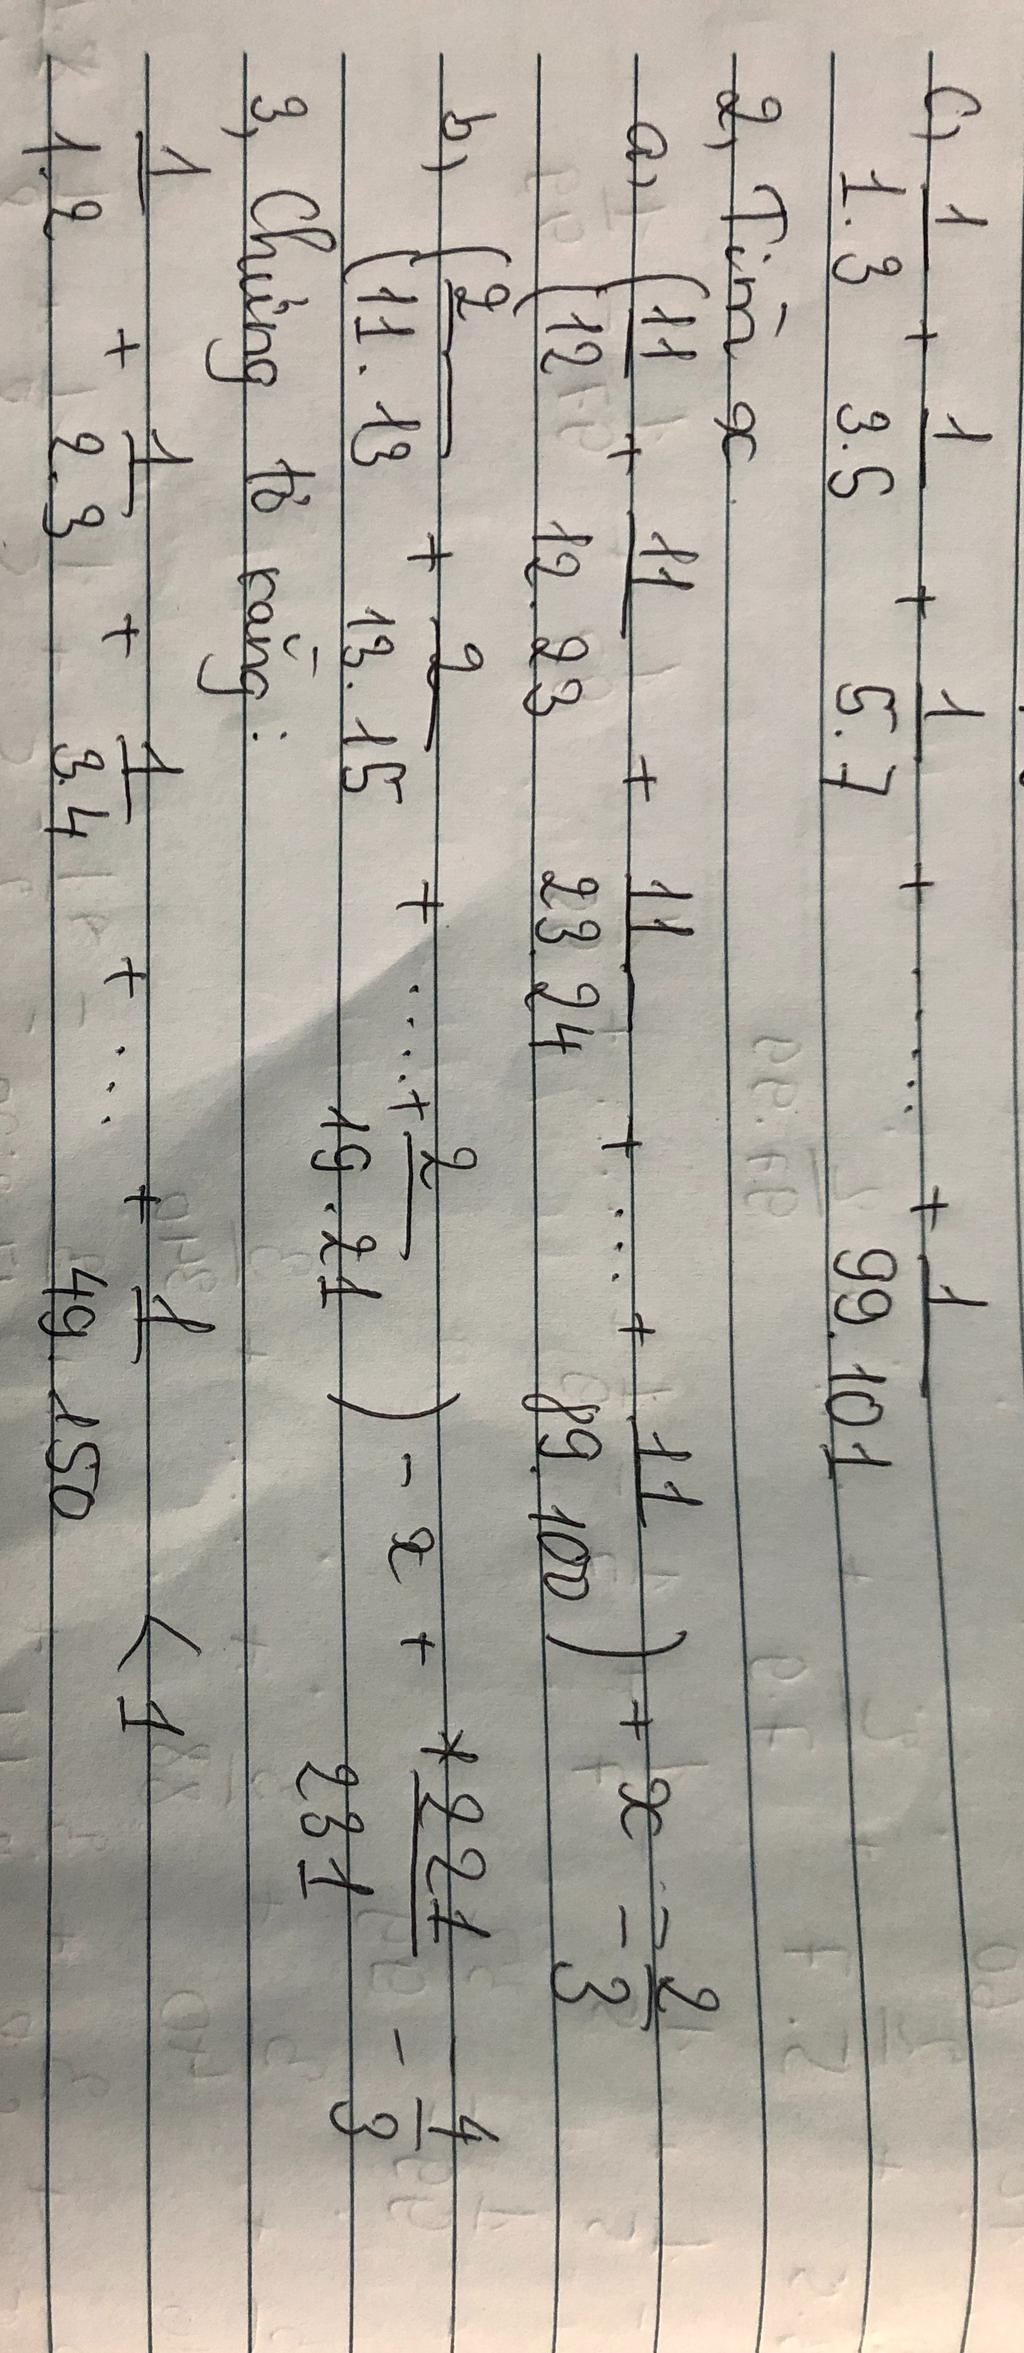 c, 1/1.3 + 1/3.5 + 1/5.7 + ..... + 1/99.101
2, Tìm x
a, (11/12 + 11/12.23 + 11/23.24 + .... + 11/89.100) + x = 2/3
b, (2/11.13 + 2/13.15 + ....+ 2/19.21) - x + 221/231 - 4/3
3, Chứng tỏ rằng:
1/1.2 + 1/2.3 + 1/3.4 + ... + 1/49.150 < 1